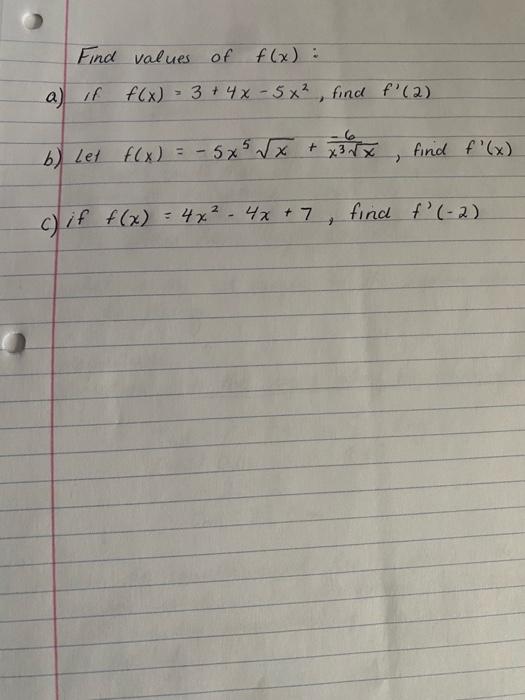 Find values of f(x):
a) if f(x) = 3 + 4x - 5x², find f'(2)
b) Let f(x) = -5x⁵√x + -6/x³√x, find f'(x)
c) if f(x) = 4x² - 4x + 7, find f'(-2)